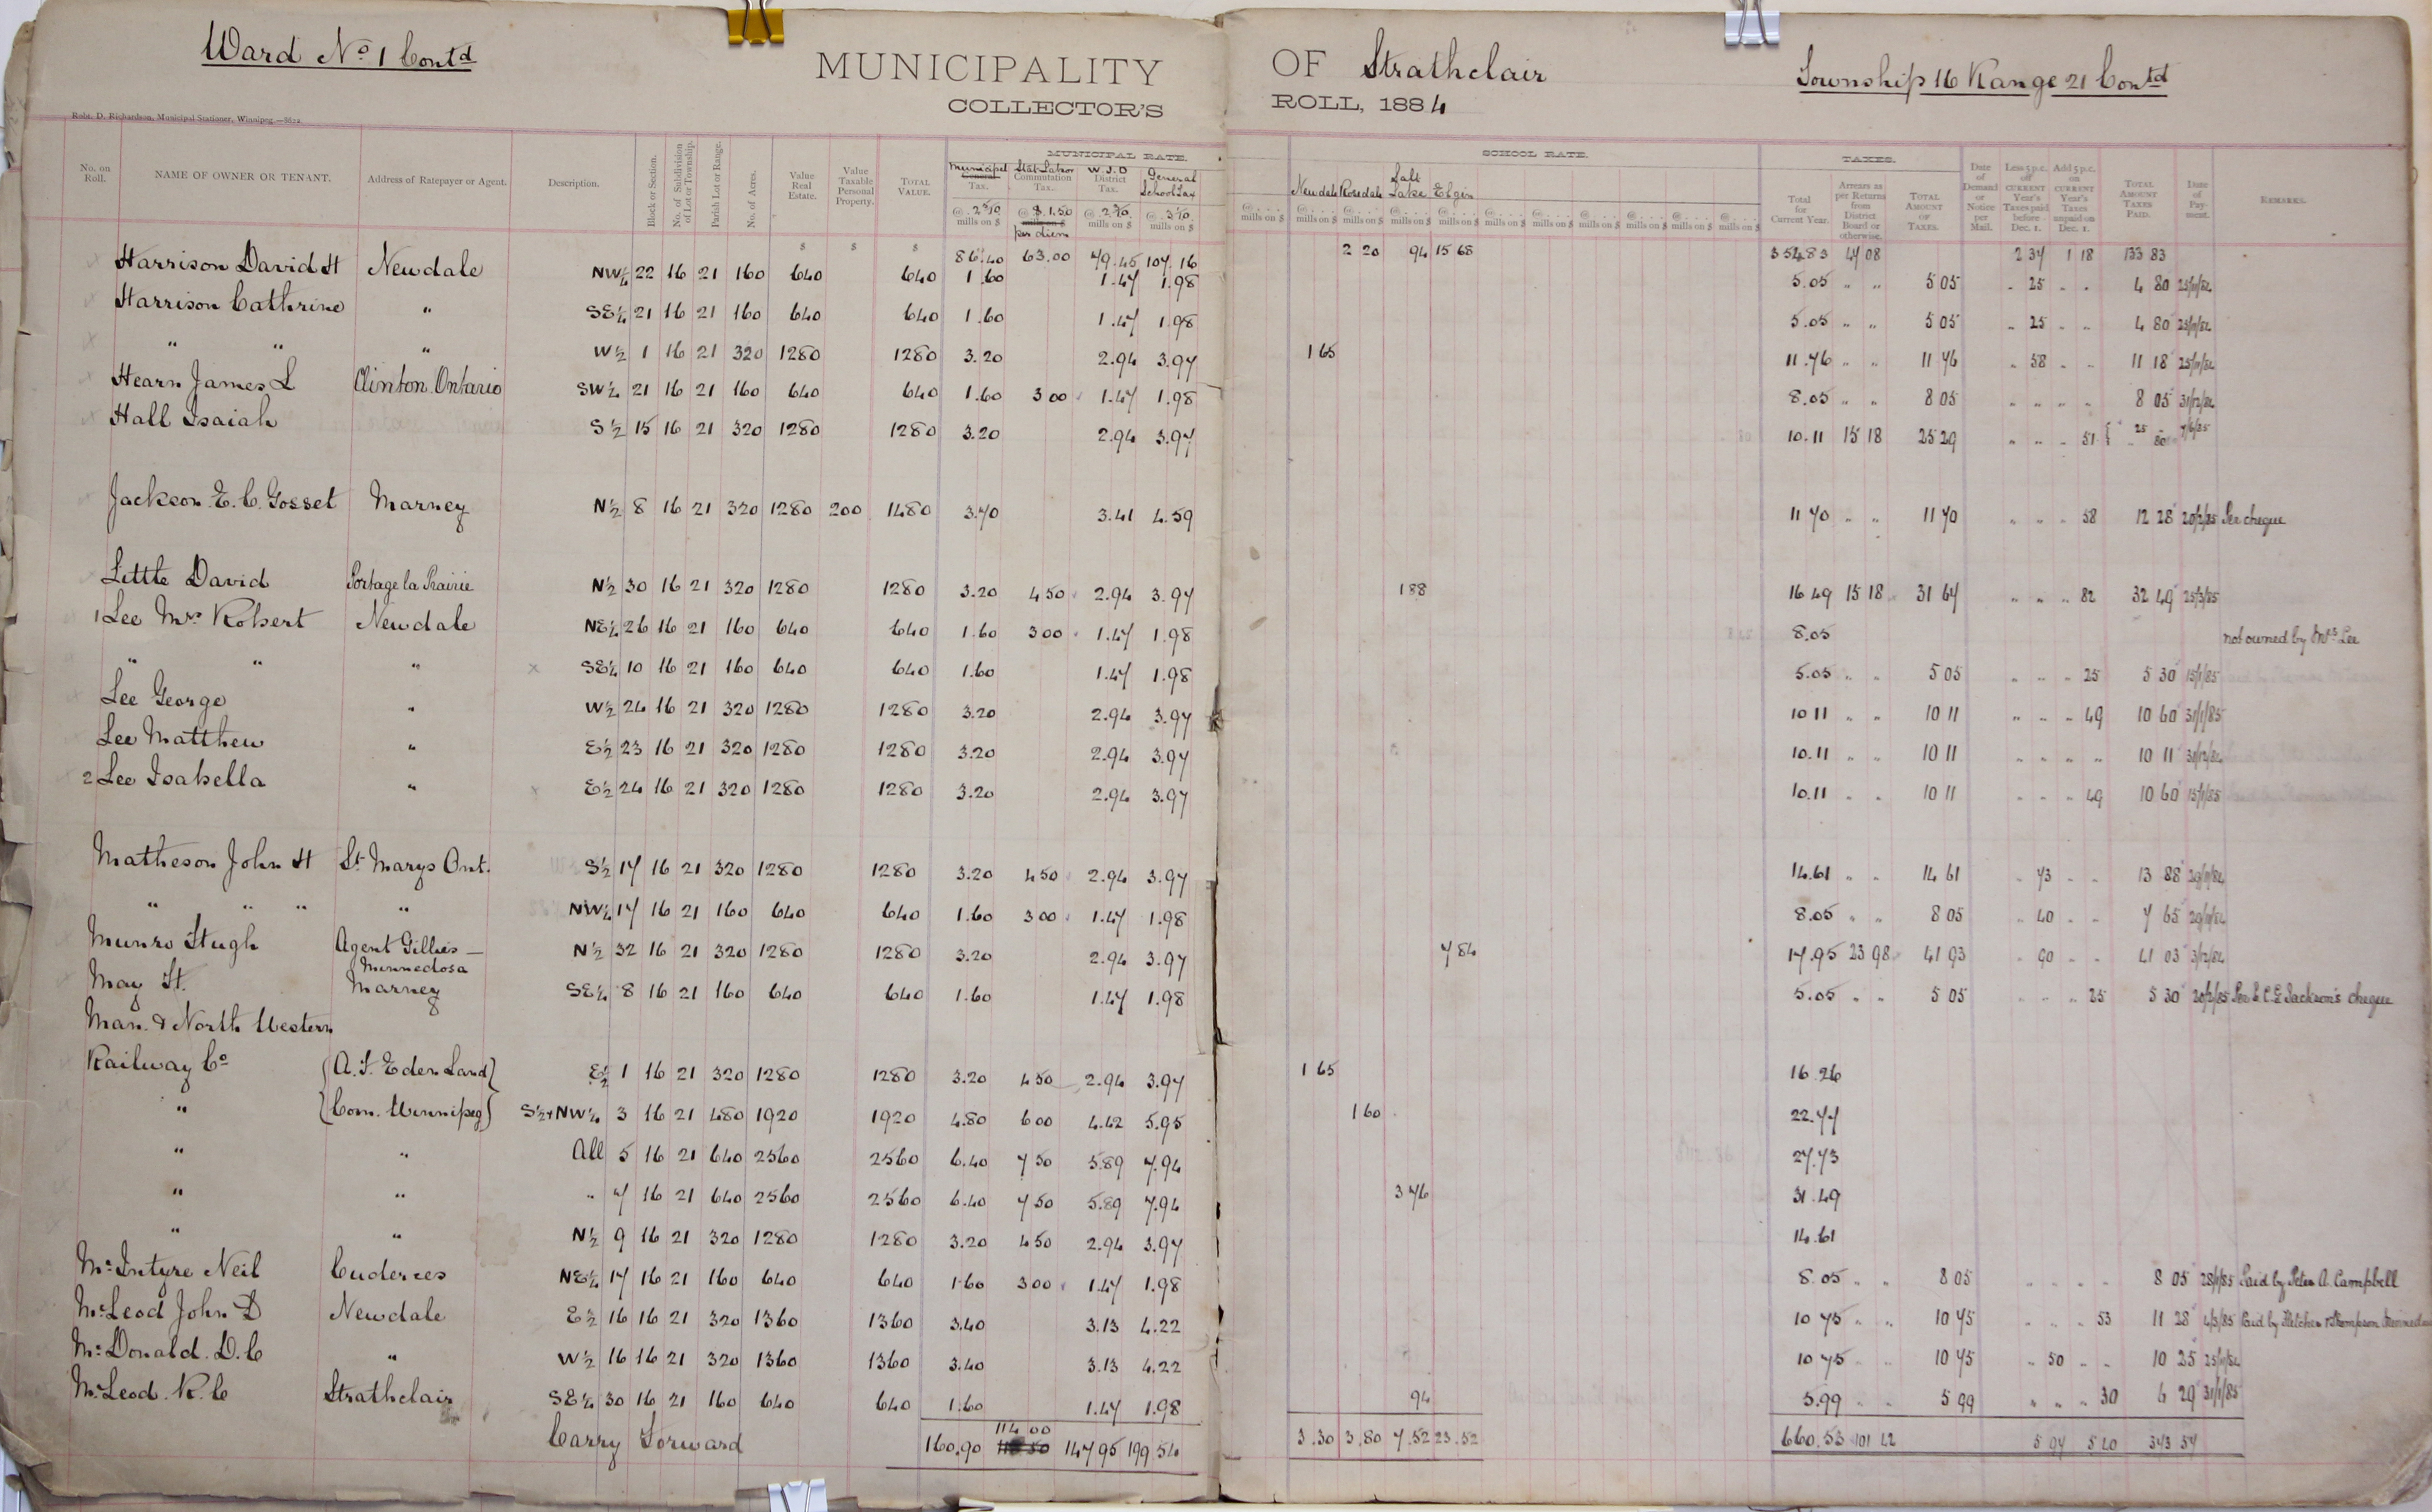 Ward No 1 Contd
MUNICIPALITY OF Strathclair
Township 16 Range 21 Contd
COLLECTOR'S ROLL, 1884
Robt. D. Richardson, Municipal Stationer, Winnipeg.
MUNICIPAL RATE. SCHOOL RATE. TAXES.
No. on Roll. NAME OF OWNER OR TENANT. Address of Ratepayer or Agent. Description. Block or Section. No. of Subdivision of Lot or Township. Parish Lot or Range. No. of Acres. Value Real Estate. Value Taxable Personal Property. TOTAL VALUE. Municipal General Tax. Stat Labor Commutation Tax. W.J.D District Tax. General School Tax Newdale Rosedale Salt Lake Elgin Total for Current Year. Arrears as per Returns from District Board or otherwise. TOTAL AMOUNT OF TAXES. Date of Demand or Notice per Mail. Less 5 p.c. off CURRENT Year's Taxes paid before Dec. 1. Add 5 p.c. on CURRENT Year's Taxes unpaid on Dec. 1. TOTAL AMOUNT TAXES PAID. Date of Payment. REMARKS.
@ 2 5/10 mills on $ @ $1.50 mills on $ per diem @ 2 3/10 mills on $ @ 3 1/10 mills on $ @ mills on $ @ mills on $ @ mills on $ @ mills on $ @ mills on $ @ mills on $ @ mills on $ @ mills on $ @ mills on $ @ mills on $ @ mills on $
$ $ $ 86.40 63.00 79.45 107.16 2 20 94 15 68 354 83 47 08 2 37 1 18 133 83
Harrison David H Newdale NW¼ 22 16 21 160 640 640 1.60 1.47 1.98 5.05 " " 5 05 " 25 " " 4 80 25/11/84
Harrison Cathrine " SE¼ 21 16 21 160 640 640 1.60 1.47 1.98 5.05 " " 5 05 " 25 " " 4 80 25/11/84
" " " W½ 1 16 21 320 1280 1280 3.20 2.94 3.97 1 65 11.76 " " 11 76 " 58 " " 11 18 25/11/84
Hearn James L Clinton Ontario SW¼ 21 16 21 160 640 640 1.60 3 00 1.47 1.98 8.05 " " 8 05 " " " " 8 05 31/12/84
Hall Isaiah S½ 15 16 21 320 1280 1280 3.20 2.94 3.97 10.11 15 18 25 29 " " " 51 25 " 80 7/6/85
Jackson E. C. Gosset Marney N½ 8 16 21 320 1280 200 1480 3.70 3.41 4.59 11 70 " " 11 70 " " " 58 12 28 20/2/85 Per cheque
Little David Portage la Prairie N½ 30 16 21 320 1280 1280 3.20 4 50 2.94 3.97 1 88 16 49 15 18 31 67 " " " 82 32 49 25/3/85
1 Lee Mrs Robert Newdale NE¼ 26 16 21 160 640 640 1.60 3 00 1.47 1.98 8.05 not owned by Mrs Lee
" " " x SE¼ 10 16 21 160 640 640 1.60 1.47 1.98 5.05 " " 5 05 " " " 25 5 30 15/1/85
Lee George " W½ 24 16 21 320 1280 1280 3.20 2.94 3.97 10 11 " " 10 11 " " " 49 10 60 31/1/85
Lee Matthew " E½ 23 16 21 320 1280 1280 3.20 2.94 3.97 10.11 " " 10 11 " " " " 10 11 31/12/84
2 Lee Isabella " x E½ 24 16 21 320 1280 1280 3.20 2.94 3.97 10.11 " " 10 11 " " " 49 10 60 15/1/85
Matheson John H St Marys Ont. S½ 17 16 21 320 1280 1280 3.20 4 50 2.94 3.97 14.61 " " 14 61 " 73 " " 13 88 29/11/84
" " " " NW¼ 17 16 21 160 640 640 1.60 3 00 1.47 1.98 8.05 " " 8 05 " 40 " " 7 65 29/11/84
Munro Hugh Agent Gillies — Minnedosa N½ 32 16 21 320 1280 1280 3.20 2.94 3.97 7 84 17.95 23 98 41 93 " 90 " " 41 03 3/12/84
May H. Marney SE¼ 8 16 21 160 640 640 1.60 1.47 1.98 5.05 " " 5 05 " " " 25 5 30 20/2/85 Per E.C.G Jackson's cheque
Man. & North Western
Railway Co (A. F. Eden Land) E½ 1 16 21 320 1280 1280 3.20 4 50 2.94 3.97 1 65 16.26
" (Com. Winnipeg) S½ & NW¼ 3 16 21 480 1920 1920 4.80 6 00 4.42 5.95 1 60 22.77
" " All 5 16 21 640 2560 2560 6.40 7 50 5.89 7.94 27.73
" " " 7 16 21 640 2560 2560 6.40 7 50 5.89 7.94 3 76 31.49
" " N½ 9 16 21 320 1280 1280 3.20 4 50 2.94 3.97 14.61
McIntyre Neil NE¼ 17 16 21 160 640 640 1.60 3 00 1.47 1.98 8.05 " " 8 05 " " " " 8 05 28/1/85 Paid by Peter A. Campbell
McLeod John D Newdale E½ 16 16 21 320 1360 1360 3.40 3.13 4.22 10 75 " " 10 75 " " " 53 11 28 4/3/85 Paid by Fletcher & Thompson
McDonald. D. C " W½ 16 16 21 320 1360 1360 3.40 3.13 4.22 10 75 " " 10 75 " 50 " " 10 25 25/11/84
McLeod. R. C Strathclair SE¼ 30 16 21 160 640 640 1.60 1.47 1.98 94 5.99 " " 5 99 " " " 30 6 29 31/1/85
Carry Forward 160.90 114 00 147 95 199 54 3.30 3.80 7.52 23.52 660.53 101 42 5 97 5 40 343 57